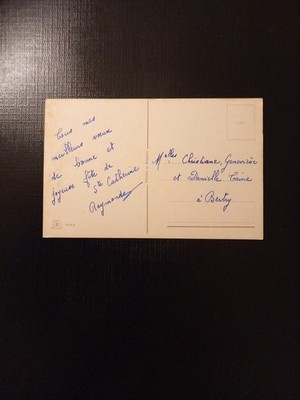 Tous mes
meilleurs vœux
de bonne et
joyeuse fête de
Ste Catherine
Raymonde
Melles Christiane, Geneviève
et Danielle
à Bertry